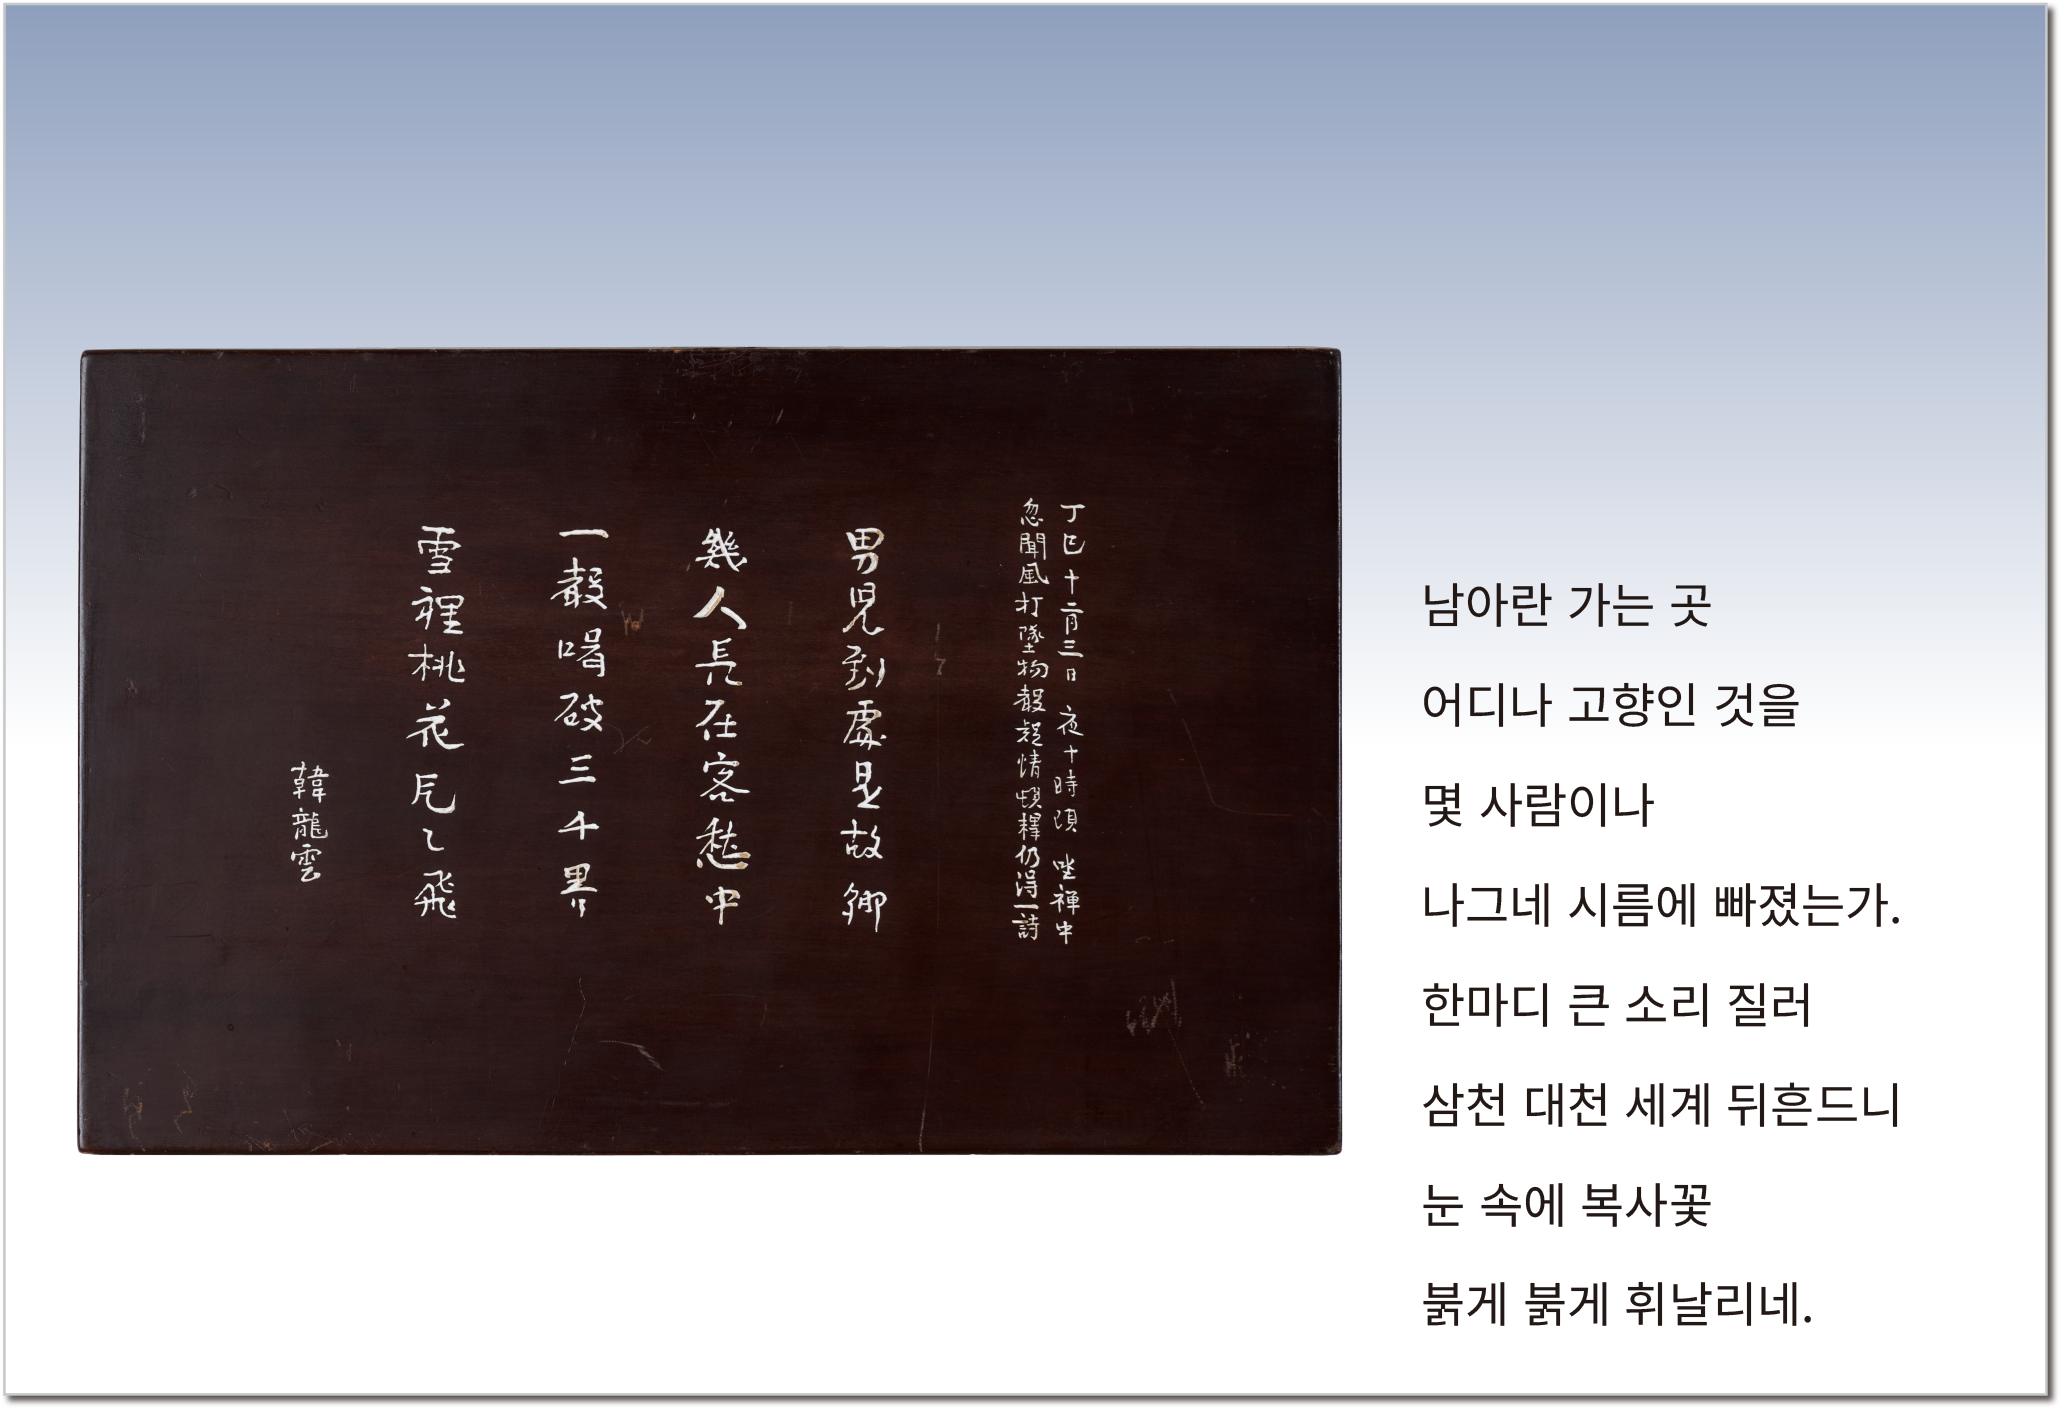 丁巳十二月三日 夜十時頃 坐禪中
忽聞風打墜物聲疑情頓釋仍得一詩
男兒到處是故鄉
幾人長在客愁中
一聲喝破三千界
雪裡桃花片〻飛
韓龍雲
남아란 가는 곳
어디나 고향인 것을
몇 사람이나
나그네 시름에 빠졌는가.
한마디 큰 소리 질러
삼천 대천 세계 뒤흔드니
눈 속에 복사꽃
붉게 붉게 휘날리네.